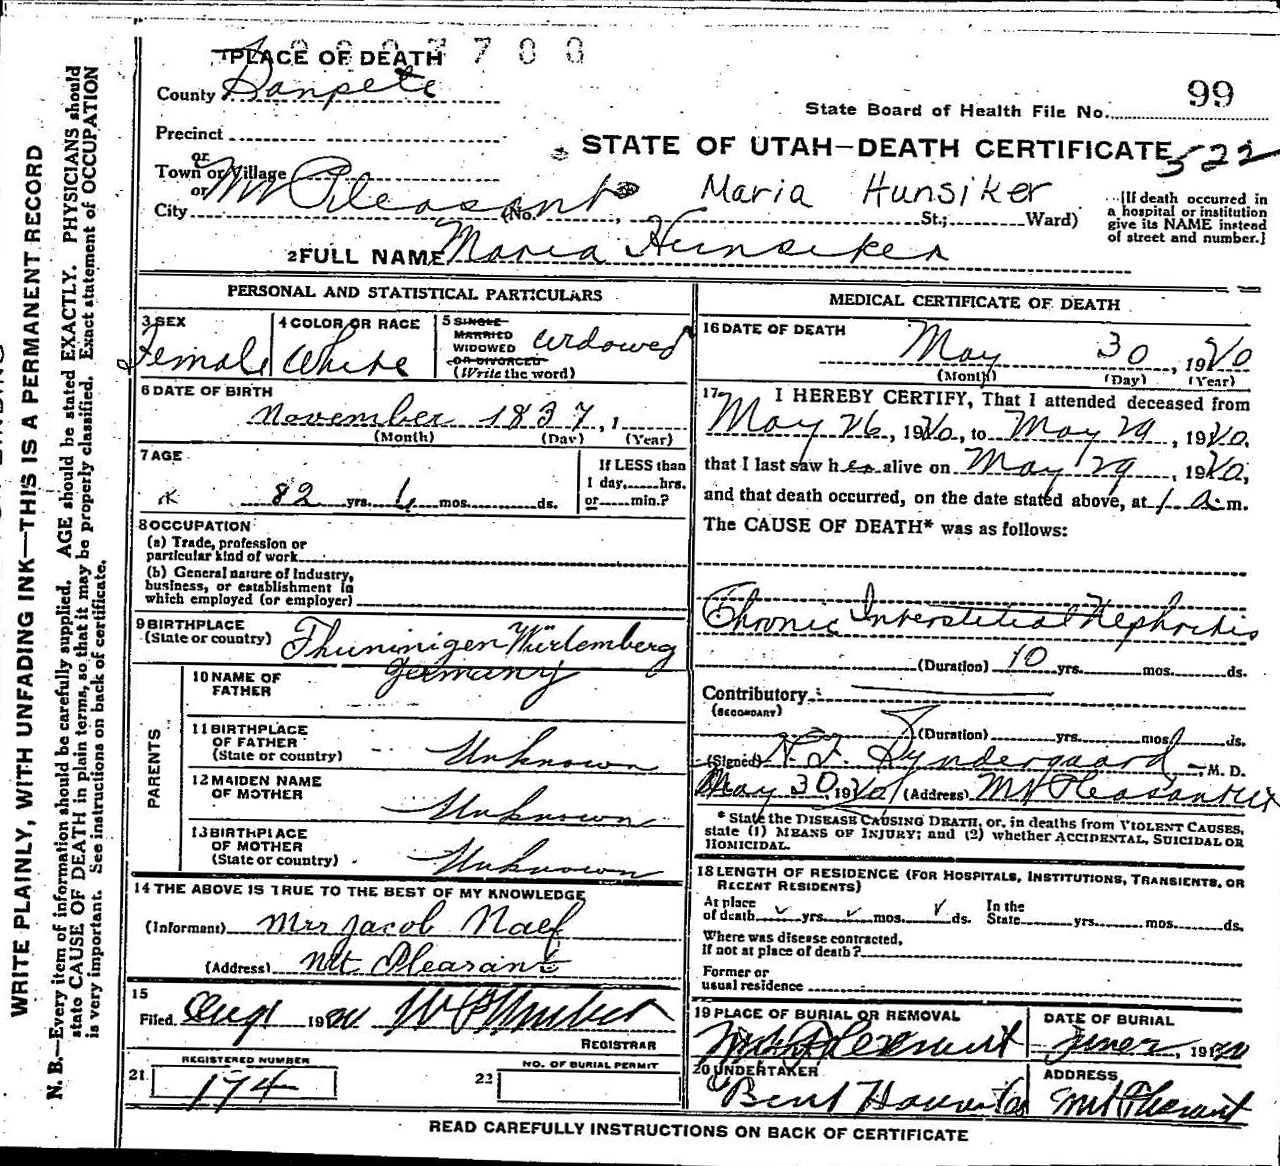 WRITE PLAINLY, WITH UNFADING INK—THIS IS A PERMANENT RECORD
N. B.—Every item of information should be carefully supplied. AGE should be stated EXACTLY. PHYSICIANS should
state CAUSE OF DEATH in plain terms, so that it may be properly classified. Exact statement of OCCUPATION
is very important. See instructions on back of certificate.
1 PLACE OF DEATH
County Sanpete
State Board of Health File No. 99
Precinct
STATE OF UTAH—DEATH CERTIFICATE 522
or
Town or Village
or Mt Pleasant
Maria Hunsiker
City (No. , St.; Ward)
[If death occurred in
a hospital or institution
give its NAME instead
of street and number.]
2 FULL NAME Maria Hunsiker
PERSONAL AND STATISTICAL PARTICULARS
3 SEX
Female
4 COLOR OR RACE
White
5 SINGLE
MARRIED
WIDOWED
OR DIVORCED
(Write the word)
Widowed
6 DATE OF BIRTH
November 1837, 1
(Month) (Day) (Year)
7 AGE
82 yrs. 6 mos. ds.
If LESS than
1 day, hrs.
or min.?
8 OCCUPATION
(a) Trade, profession or
particular kind of work
(b) General nature of industry,
business, or establishment in
which employed (or employer)
9 BIRTHPLACE
(State or country) Thuninigen Würlemberg
Germany
PARENTS
10 NAME OF
FATHER
11 BIRTHPLACE
OF FATHER
(State or country) Unknown
12 MAIDEN NAME
OF MOTHER
Unknown
13 BIRTHPLACE
OF MOTHER
(State or country) Unknown
14 THE ABOVE IS TRUE TO THE BEST OF MY KNOWLEDGE
(Informant) Mrs Jacob Naef
(Address) Mt Pleasant
15
Filed Aug 1 1920
REGISTRAR
21 REGISTERED NUMBER
174
22 NO. OF BURIAL PERMIT
MEDICAL CERTIFICATE OF DEATH
16 DATE OF DEATH
May 30, 1920
(Month) (Day) (Year)
17 I HEREBY CERTIFY, That I attended deceased from
May 26, 1920, to May 29, 1920,
that I last saw her alive on May 29, 1920,
and that death occurred, on the date stated above, at 1 a. m.
The CAUSE OF DEATH* was as follows:
Chronic Interstitial Nephritis
(Duration) 10 yrs. mos. ds.
Contributory
(SECONDARY)
(Duration) yrs. mos. ds.
(Signed) Syndergaard, M. D.
May 30, 1920 (Address) Mt Pleasant Ut
* State the DISEASE CAUSING DEATH, or, in deaths from VIOLENT CAUSES,
state (1) MEANS OF INJURY; and (2) whether ACCIDENTAL, SUICIDAL OR
HOMICIDAL.
18 LENGTH OF RESIDENCE (FOR HOSPITALS, INSTITUTIONS, TRANSIENTS, OR
RECENT RESIDENTS)
At place
of death yrs. mos. ds.
In the
State yrs. mos. ds.
Where was disease contracted,
if not at place of death?
Former or
usual residence
19 PLACE OF BURIAL OR REMOVAL
Mt Pleasant
DATE OF BURIAL
June 2, 1920
20 UNDERTAKER
Bent
ADDRESS
Mt Pleasant
READ CAREFULLY INSTRUCTIONS ON BACK OF CERTIFICATE